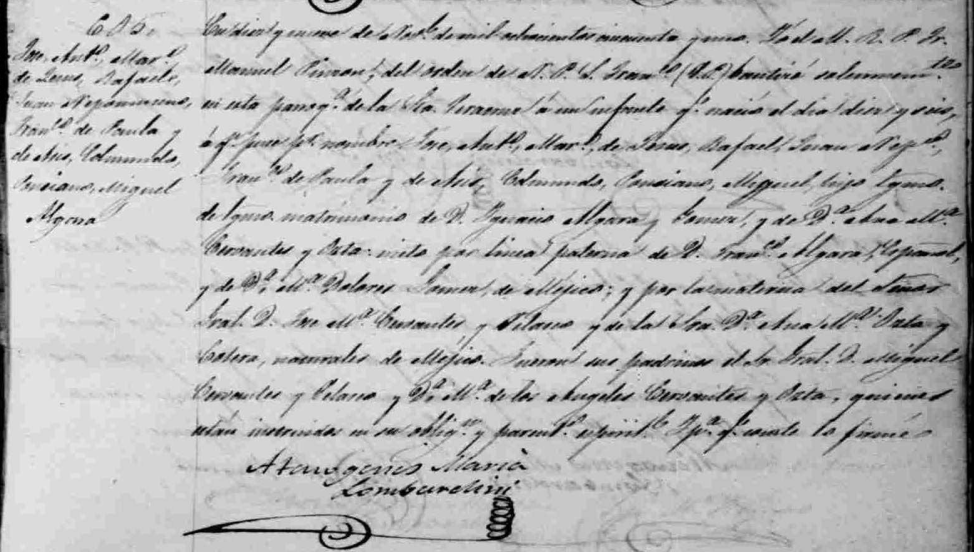 Jose, Ant.º, Mar.ª
de Jesus, Rafael,
Juan Nepomuceno,
Fran.co de Paula y
de Asis, Edmundo,
Ponciano, Miguel
Algara
En diez y nueve de Nov.e de mil ochocientos cincuenta y uno. Yo el M. R. P. Fr.
Manuel Pinzon, del orden de N. P. S. Fran.co (V.P.) bautizé solemnem.te
en esta parroq.ª de la Sta. Veracruz á un infante q.e nació el dia diez y seis,
á q.n puse p.r nombre Jose, Ant.º, Mar.ª de Jesus, Rafael, Juan Nep.º,
Fran.co de Paula y de Asis, Edmundo, Ponciano, Miguel, hijo lgmo.
de lgmo. matrimonio de D. Ignacio Algara y Gomez, y de D.ª Ana M.ª
Cervantes y Ozta: nieto por linea paterna de D. Fran.co Algara, Español,
y de D.ª M.ª Dolores Gomez, de Méjico; y por la materna del Señor
Gral. D. Jose M.ª Cervantes y Velasco y de la Sra. D.ª Ana M.ª Ozta y
Cotera, naturales de Méjico. Fueron sus padrinos el Sr. Gral. D. Miguel
Cervantes y Velasco y D.ª M.ª de los Angeles Cervantes y Ozta, quienes
están instruidos en su oblig.n y parent.co espirit.l Y p.ª q.e conste lo firmé
Atenogenes María
Lombardini